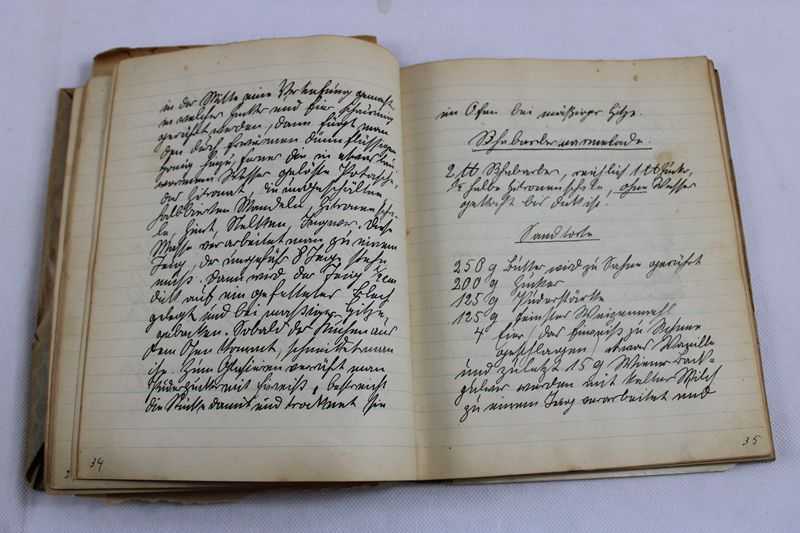 in der Mitte eine Vertiefung gemacht,
in welcher Zucker und Eier schaumig
gerührt werden, dann fügt man
den durch Erwärmen dünnflüssigen
Honig hinzu, ferner die in etwas lau
warmem Wasser gelöste Pottasche,
das Zitronat, die
halbierten Mandeln, Zitronenscha-
le, Zimt, Nelken, Ingwer. Diese
Masse verarbeitet man zu einem
Teig, der ungefähr 8 Tage stehn
muß. Dann wird der Teig ½ cm
dick auf ein gefettetes Blech
gelegt und bei mäßiger Hitze
gebacken. Sobald der Kuchen aus
dem Ofen kommt, schneidet man
ihn. Zum Glasieren verrührt man
Puderzucker mit Eiweiß, bestreicht
die Stücke damit und trocknet sie
34
2
im Ofen bei mäßiger Hitze.
Rhabarbermarmelade.
2 ℔ Rhabarber, reichlich 1 ℔ Zucker,
halbe Zitronenschale, ohne Wasser
gekocht bis dick ist.
Sandtorte
250 g Butter wird zu Sahne gerührt
200 g Zucker
125 g Puderstärke
125 g feinstes Weizenmehl
4 Eier (das Eiweiß zu Schnee
geschlagen) etwas Vanille
und zuletzt 15 g Wiener Back-
pulver werden mit kalter Milch
zu einem Teig verarbeitet und
35